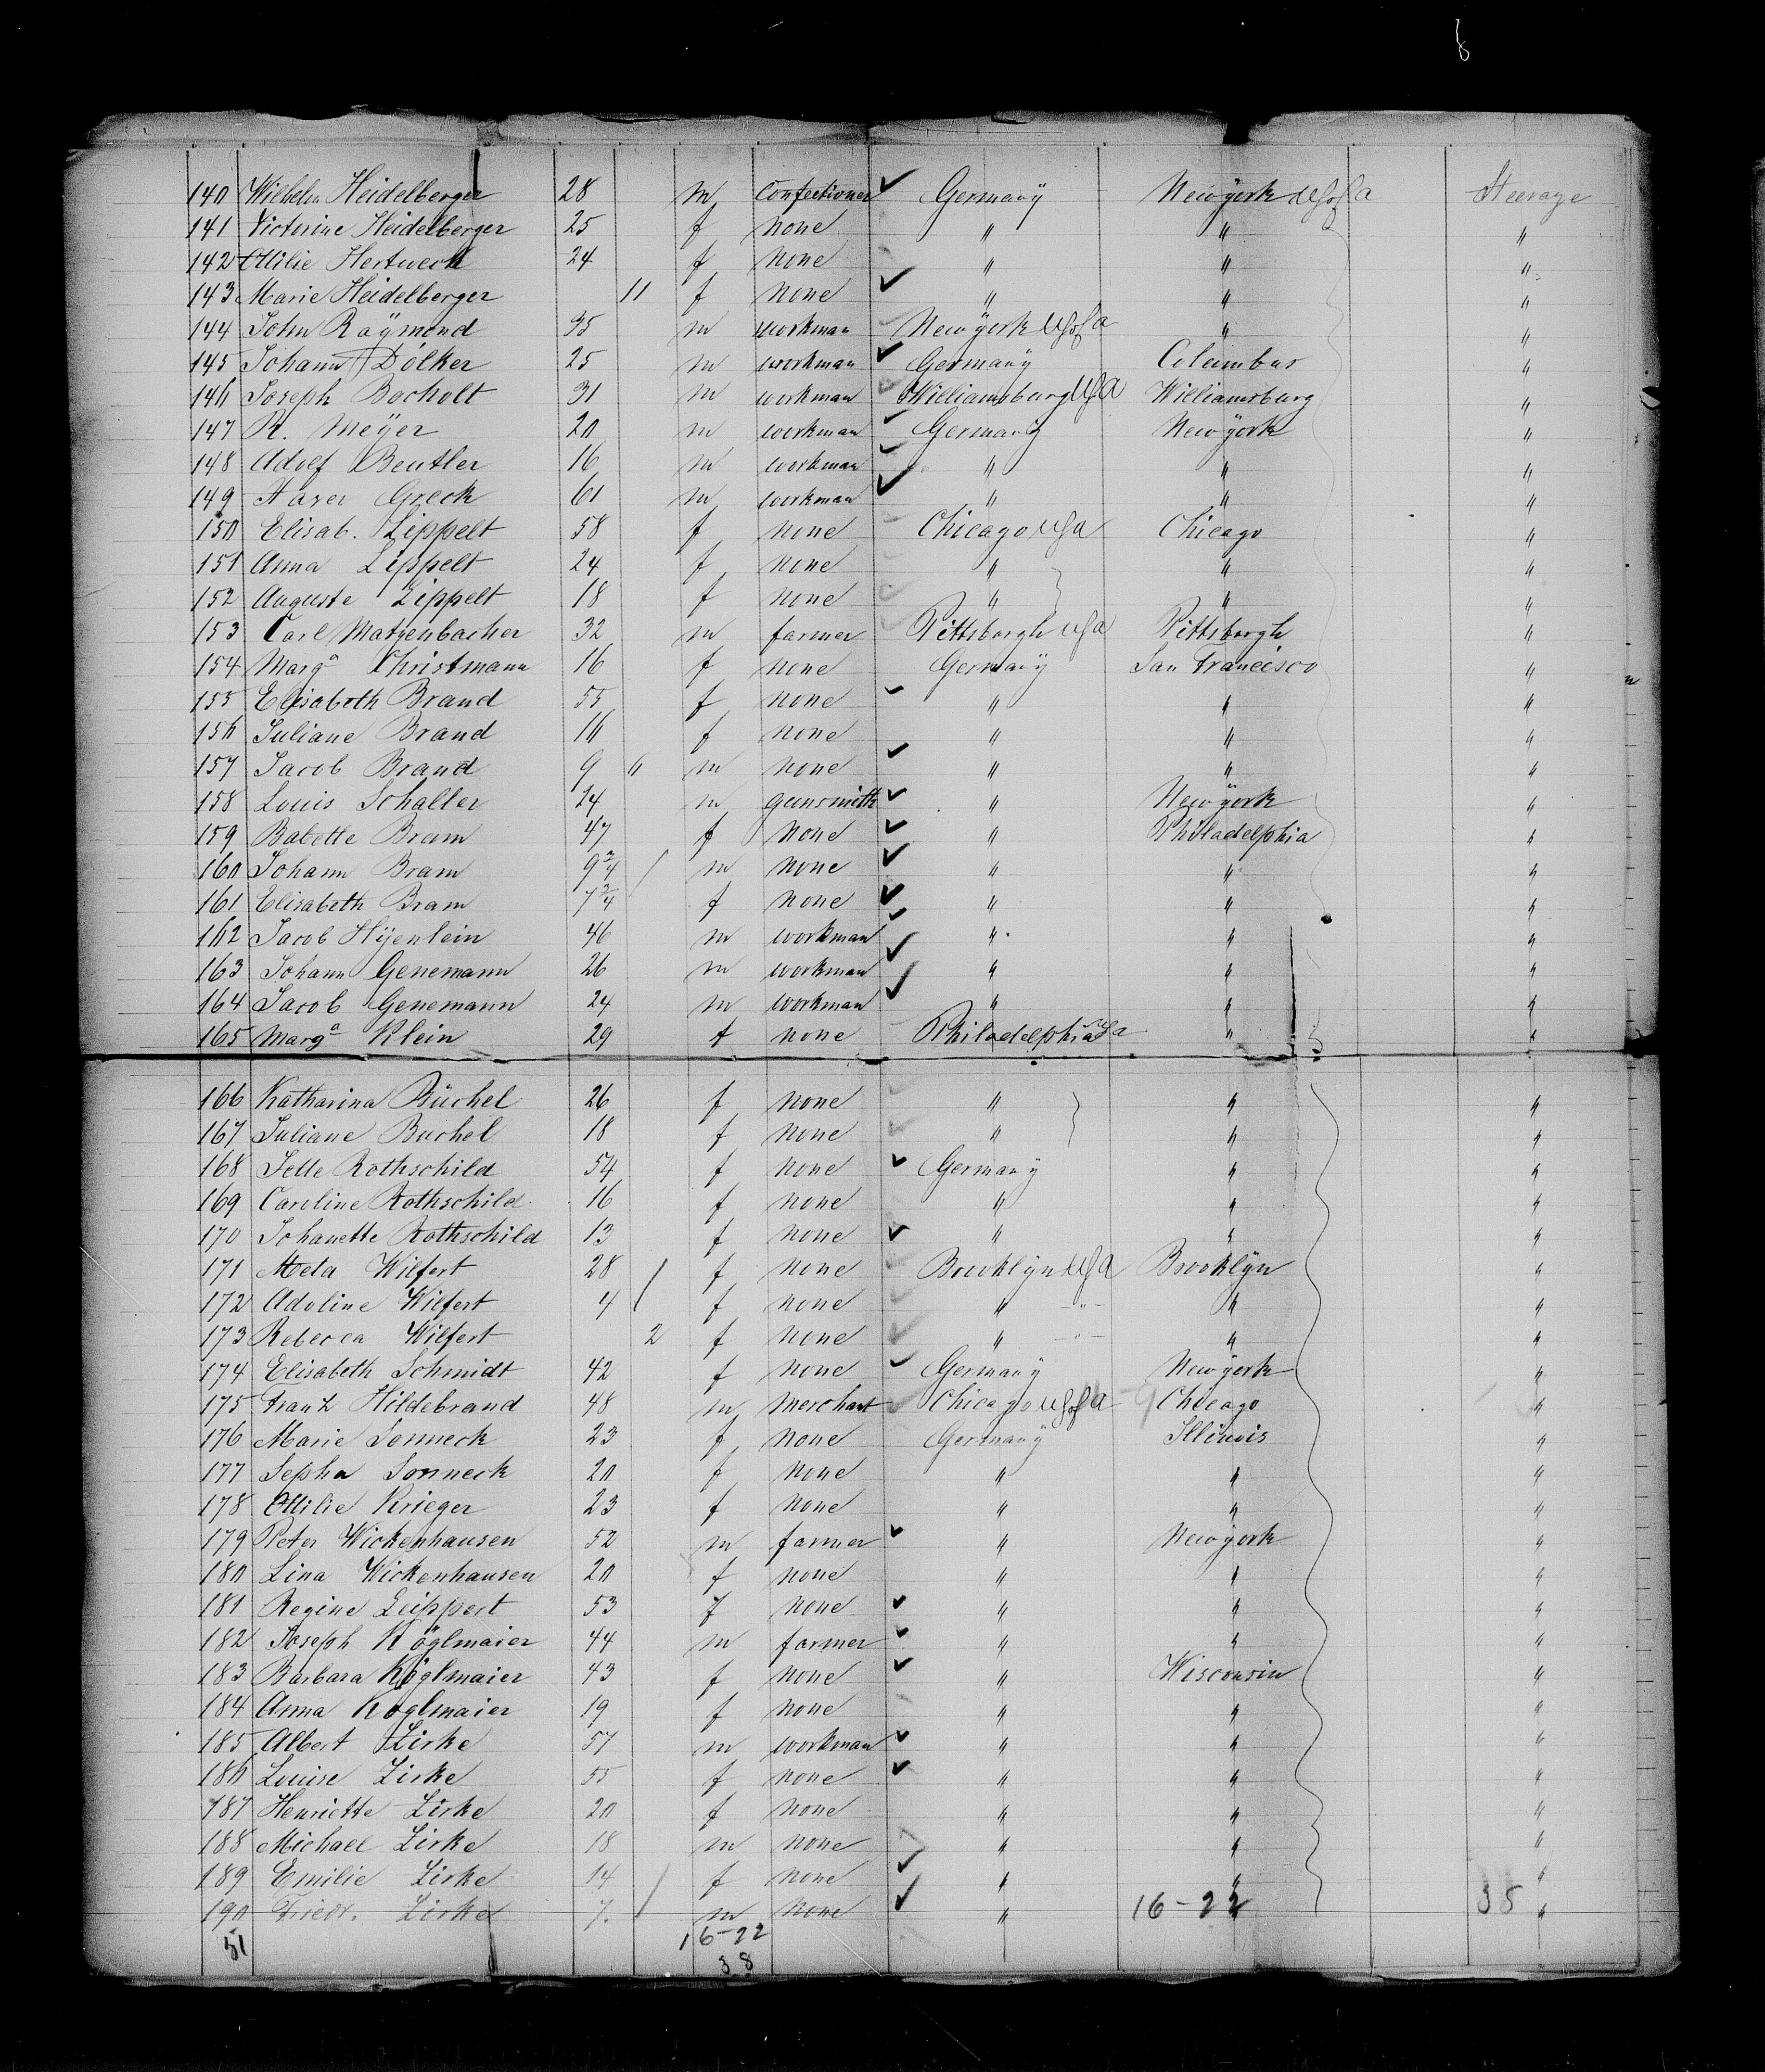 8
140 Wilhelm Heidelberger 28 m Confectioner Germany Newyork USofa Steerage
141 Victorine Heidelberger 25 f none " " "
142 Ottilie Hertweck 24 f none " " "
143 Marie Heidelberger 11 f none " " "
144 John Raymond 35 m workman Newyork USofa " "
145 Johann Dölker 25 m workman Germany Columbus "
146 Joseph Bocholt 31 m workman Williamsburg USA Williamsburg "
147 R. Meyer 20 m workman Germany Newyork "
148 Adolf Beutler 16 m workman " " "
149 Xaver Greck 61 m workman " " "
150 Elisab. Lippelt 58 f none Chicago USa Chicago "
151 Anna Lippelt 24 f none " " "
152 Auguste Lippelt 18 f none " " "
153 Carl Matzenbacher 32 m farmer Pittsborgh USa Pittsborgh "
154 Marga Christmann 16 f none Germany San Francisco "
155 Elisabeth Brand 55 f none " " "
156 Juliane Brand 16 f none " " "
157 Jacob Brand 9 " m none " " "
158 Louis Schaller 24 m gunsmith " Newyork "
159 Babette Bram 47 f none " Philadelphia "
160 Johann Bram 9 3/4 m none " " "
161 Elisabeth Bram 7 3/4 f none " " "
162 Jacob Hijenlein 46 m workman " " "
163 Johann Genemann 26 m workman " " "
164 Jacob Genemann 24 m workman " " "
165 Marga Klein 29 f none Philadelphia USa " "
166 Katharina Büchel 26 f none " " "
167 Juliane Buchel 18 f none " " "
168 Jette Rothschild 54 f none Germany " "
169 Caroline Rothschild 16 f none " " "
170 Johanette Rothschild 13 f none " " "
171 Meta Wilfert 28 f none Brooklyn USA Brooklyn "
172 Adoline Wilfert 4 f none " " "
173 Rebecca Wilfert 2 f none " " "
174 Elisabeth Schmidt 42 f none Germany Newyork "
175 Frank Hildebrand 48 m merchant Chicago USofA Chicago "
176 Marie Sonneck 23 f none Germany Illinois "
177 Sepha Sonneck 20 f none " " "
178 Ottilie Krieger 23 f none " " "
179 Peter Wickenhausen 52 m farmer " Newyork "
180 Lina Wickenhausen 20 f none " " "
181 Regine Leippert 53 f none " " "
182 Joseph Köglmaier 44 m farmer " " "
183 Barbara Köglmaier 43 f none " Wisconsin "
184 Anna Koglmaier 19 f none " " "
185 Albert Zirke 57 m workman " " "
186 Louise Zirke 55 f none " " "
187 Henriette Zirke 20 f none " " "
188 Michael Zirke 18 m none " " "
189 Emilie Zirke 14 f none " " "
190 Friedr. Zirke 7. m none " " "
16-22 35
51 16-22
38